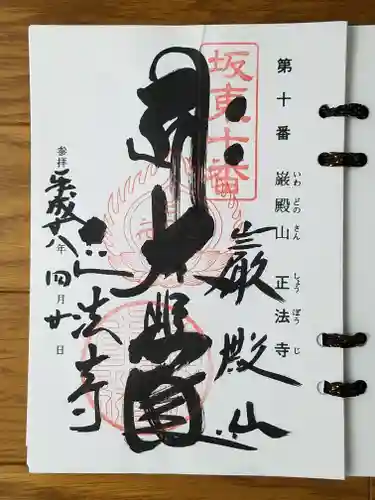 第十番 巌殿山 正法寺
いわ どの さん しょう ぼう じ
坂東十番
巌殿山
大悲
正法寺
参拝 平成廿八年四月廿日